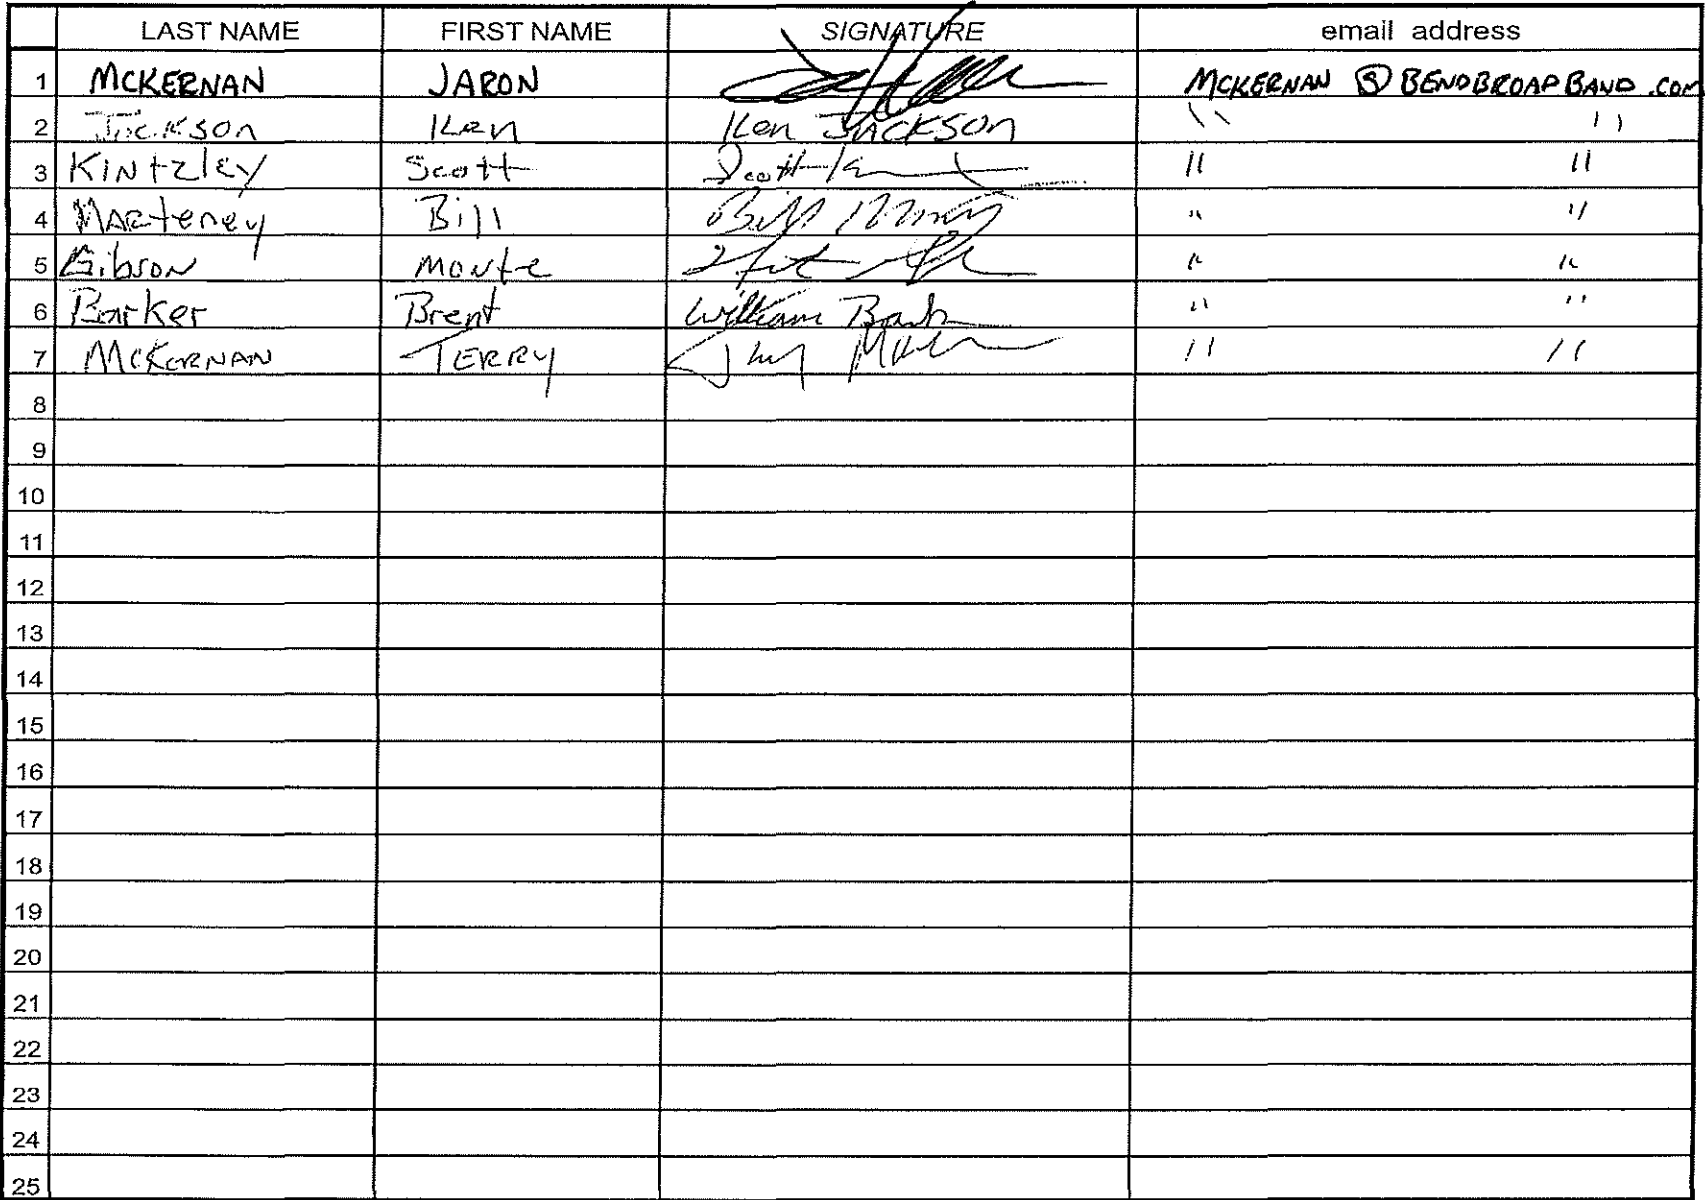 LAST NAME FIRST NAME SIGNATURE email address
1 MCKERNAN JARON MCKERNAN @ BENDBROADBAND.COM
2 Jackson Ken Ken JACKSON " "
3 Kintzley Scott Scott " "
4 Marteney Bill Bill " "
5 Gibson Monte " "
6 Barker Brent William Bark " "
7 McKERNAN TERRY " "
8
9
10
11
12
13
14
15
16
17
18
19
20
21
22
23
24
25